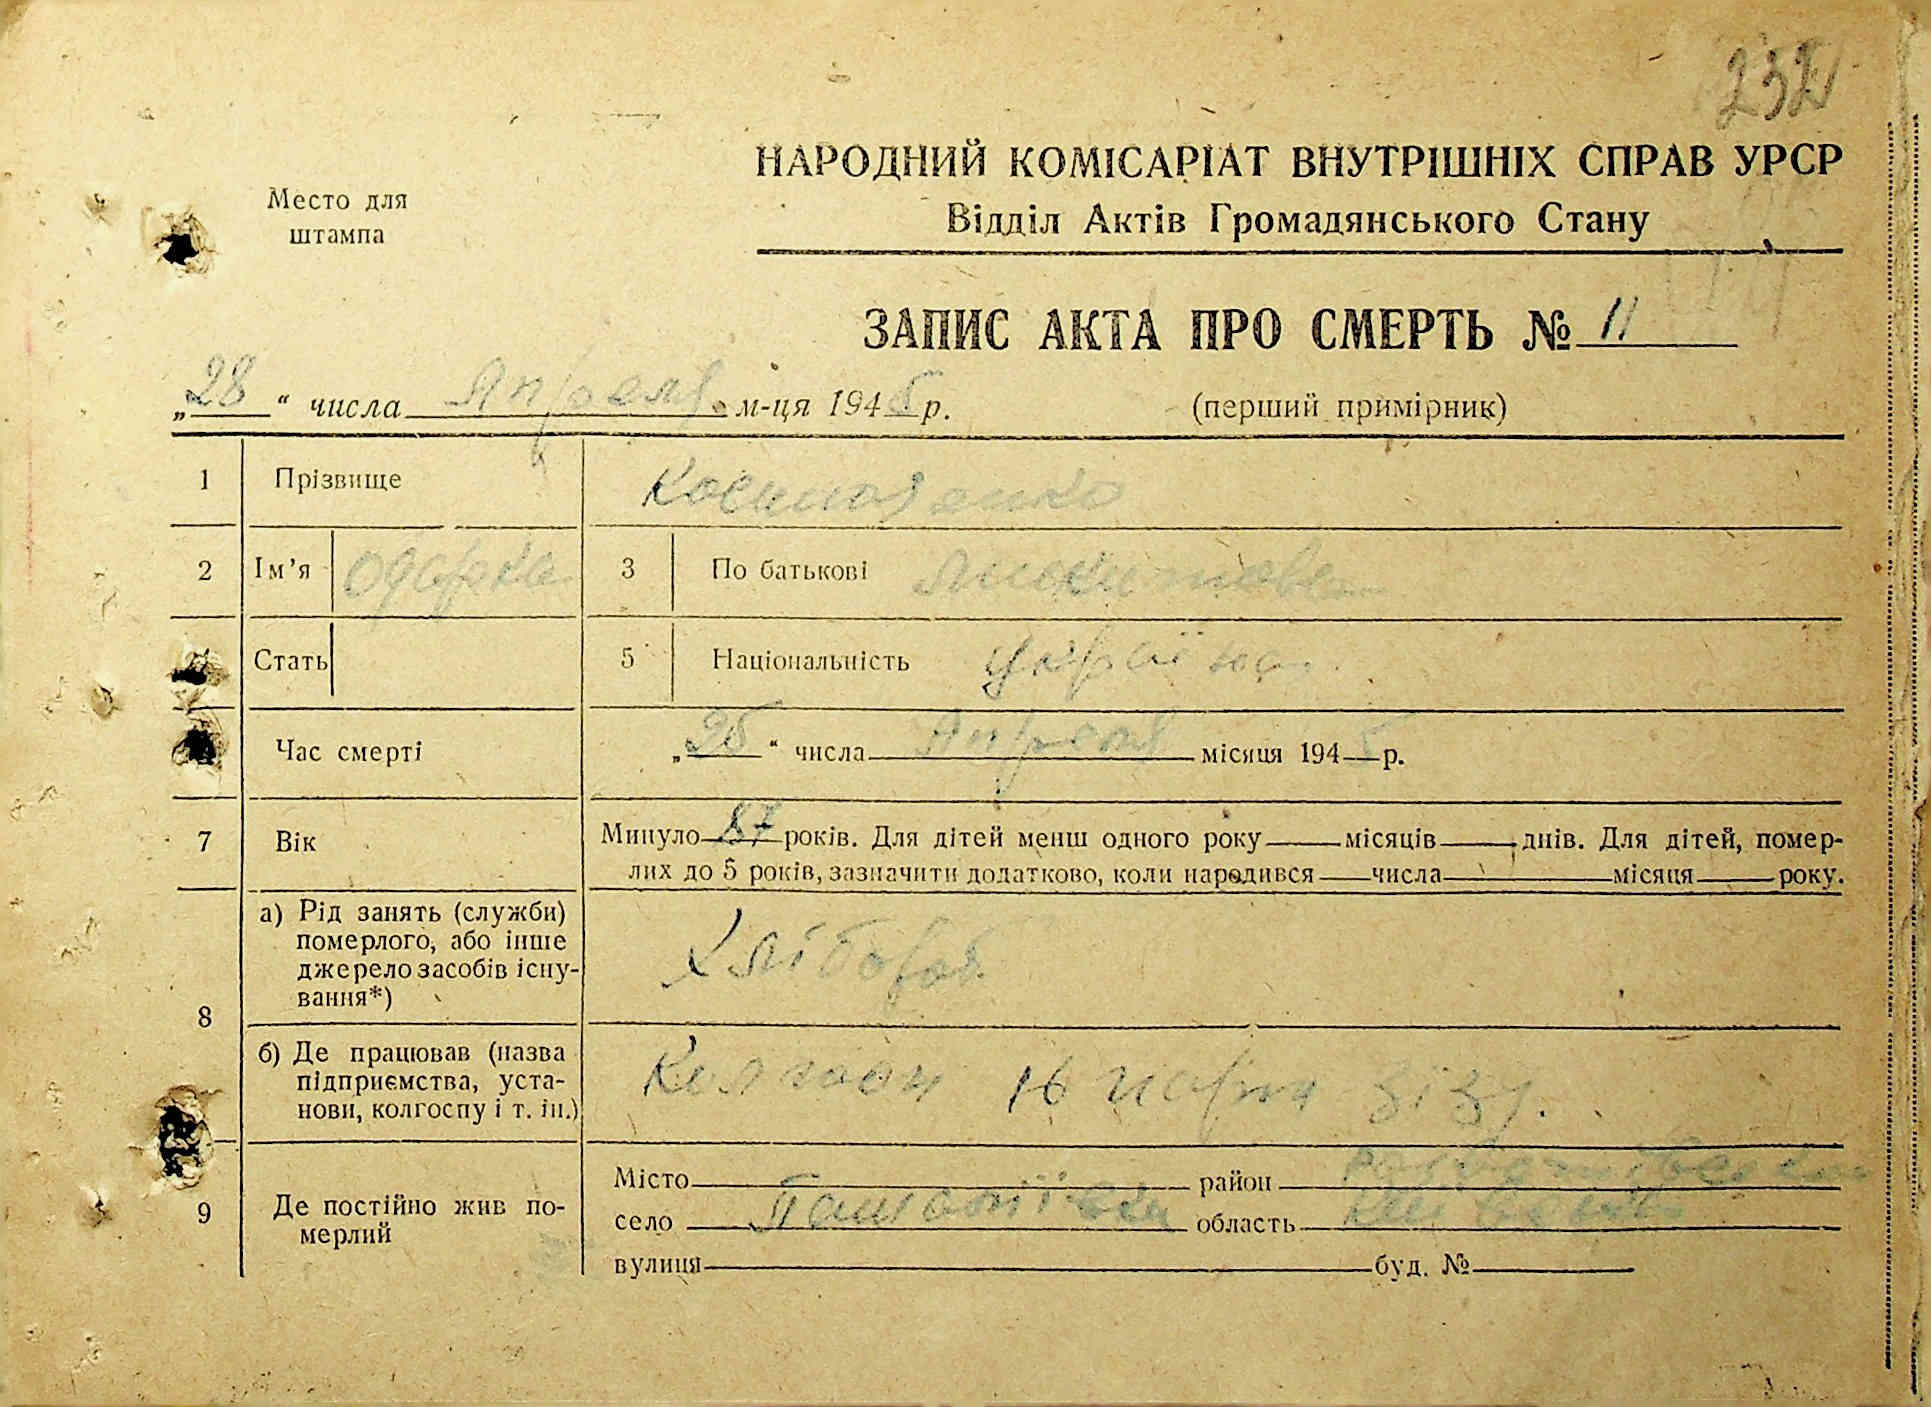 232
НАРОДНИЙ КОМІСАРІАТ ВНУТРІШНІХ СПРАВ УРСР
Место для штампа
Відділ Актів Громадянського Стану
ЗАПИС АКТА ПРО СМЕРТЬ № 11
„28“ числа Апреля м-ця 1945 р. (перший примірник)
1 Прізвище
2 Ім’я Одарка 3 По батькові
Стать 5 Національність україн
Час смерті „25“ числа Апреля місяця 1945 р.
7 Вік Минуло 87 років. Для дітей менш одного року місяців днів. Для дітей, помер-
лих до 5 років, зазначити додатково, коли народився числа місяця року.
8 а) Рід занять (служби)
померлого, або інше
джерело засобів існу-
вання*) Хлібороб
б) Де працював (назва
підприємства, уста-
нови, колгоспу і т. ін.) 16 парт зїзду.
9 Де постійно жив по-
мерлий
Місто район
село область
вулиця буд. №